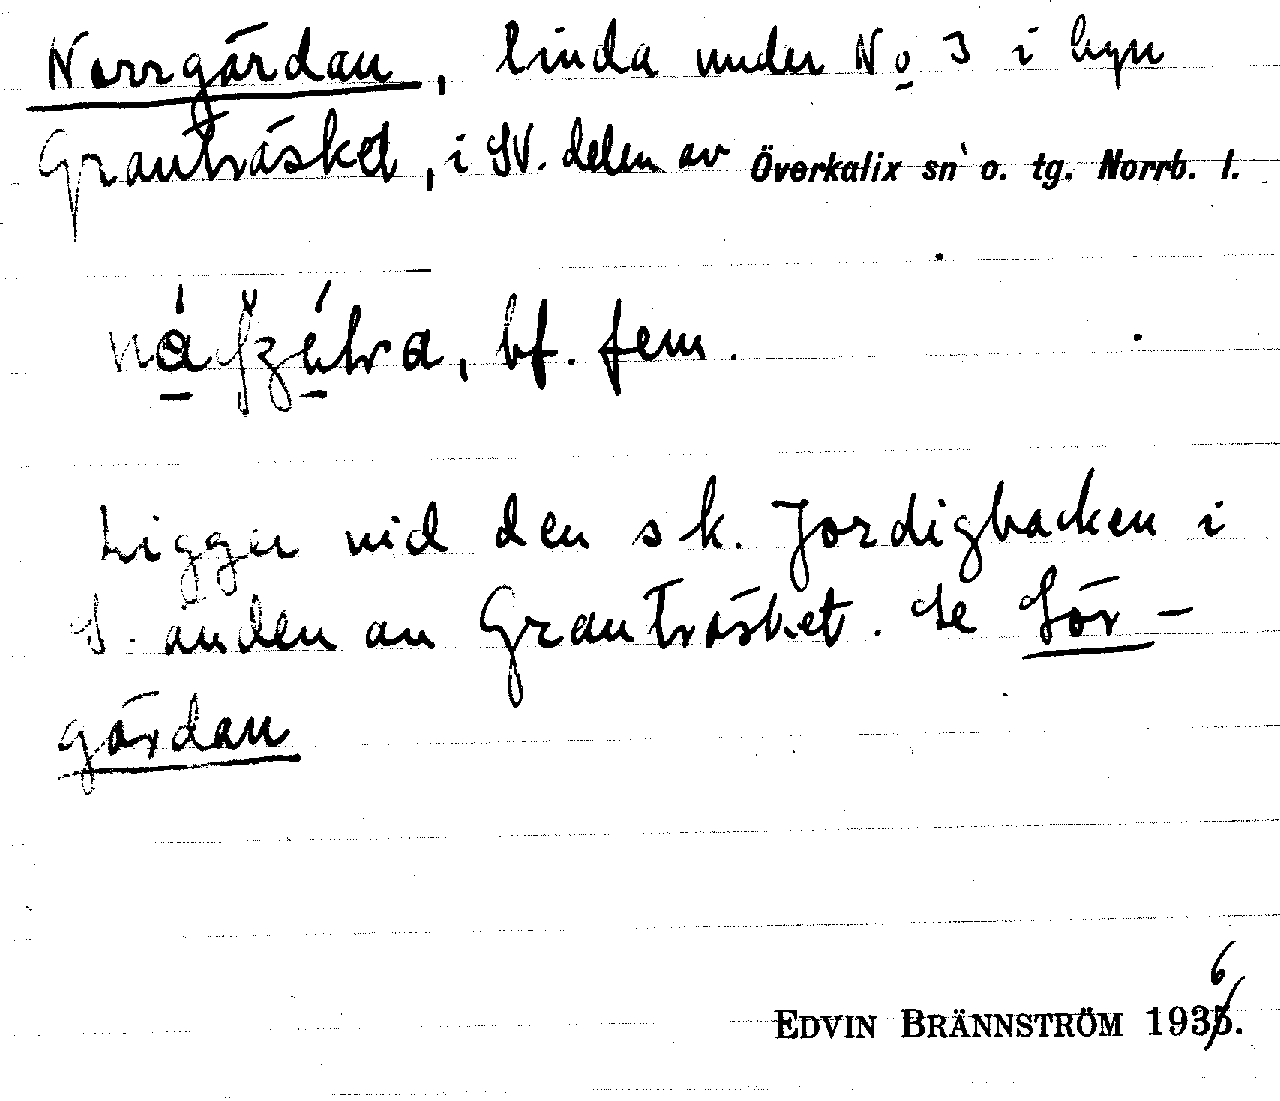 Norrgårdan, linda under No 3 i byn
Granträsket, i SV. delen av Överkalix sn o. tg. Norrb. l.
bf. fem.
Ligger vid den s k. Jordigbacken i
S. änden av Granträsket. Se Sör-
gårdan
EDVIN BRÄNNSTRÖM 1936.